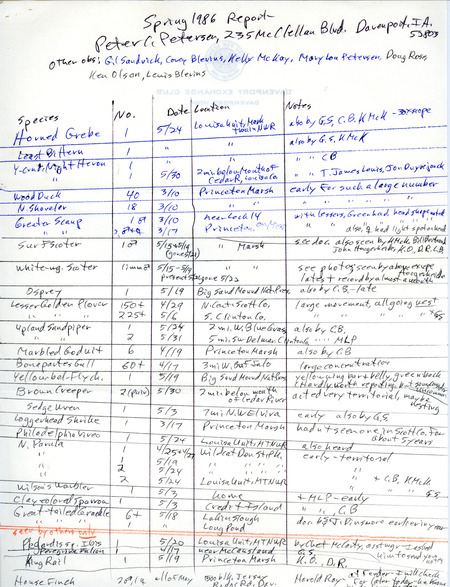 Spring 1986 Report -
Peter C. Petersen, 235 McClellan Blvd. Davenport, IA. 52803
Other obs: Gil Sandvick, Corey Blevins, Kelly McKay, Mary Lou Petersen, Doug Ross,
Ken Olson, Lewis Blevins
DAVENPORT EXCHANGE CLUB
Species No. Date Location Notes
Horned Grebe 1 5/24 Louisa Unit, Mark Twain NWR also by G.S, C.B, K McK - 30x scope
Least Bittern 1 " " also by G.S, K McK
Y-Cr. Night Heron 1 " " " C B
" 1 5/30 2 mi. below Mouth of Cedar R., Louisa Co " T. James Louis, Jon Duyvejonck
Wood Duck 40 3/10 Princeton Marsh early for such a large number
N. Shoveler 18 3/10 "
Greater Scaup 1♂ 3/10 near Lock 14 with lessers, Green had head shape noted
3/17 Princeton, " also, ♀ had light spot on head
Surf Scoter 1♂ 5/15+5/16 (gone 5/21) " Marsh see doc. also seen by K McK,
White-wg. Scoter 5/15-5/19 gone 5/22 see photos seen by above except
Osprey 1 5/19 Big Sand Mound Nat. Pres. also by C.B. - late
Lesser Golden Plover 150+ 4/29 N. Cent. Scott Co. large movement, all going west
" " 225+ 5/6 S. Clinton Co. " "
Upland Sandpiper 1 5/24 2 mi. W. Blue Grass also by C.B.
" 2 5/31 5 mi. SW Delmar, Clinton Co. " MLP
Marbled Godwit 6 4/19 Princeton Marsh also by C B
Bonaparte's Gull 60+ 4/17 3 mi W. Buffalo large concentration
Yellow-bel. Flyc. 1 5/19 Big Sand Mound Nat. Pres. yellow wing bar + belly, green back
Brown Creeper 2 (pair) 5/30 2 mi. below mouth of Cedar River acted very territorial, maybe nesting
Sedge Wren 1 5/3 7 mi N.W. Elvira early also by G.S.
Loggerhead Shrike 1 3/17 Princeton Marsh hadn't seen one in Scott Co. for about 5 years
Philadelphia Vireo 1 5/24 Louisa Unit, MTNWR also heard
N. Parula 1 4/25+4/27 Wildcat Den St. Pk. early - territorial
" 2 5/19 "
" 2 5/24 Louisa Unit, MTNWR " + C.B, K McK
Wilson's Warbler 1 5/3 home + MLP - early G.S
Clay colored Sparrow 1 5/3 Credit Island " ", C.B
Great-tailed Grackle 6+ 5/18 Lakin Slough
" " Long Pond
seen by others only
Plegadis sp. Ibis 1 5/20 Louisa Unit, MTNWR by Chet McCarty,
Peregrine Falcon 1 4/17 near McCausland G.S.
King Rail 1 5/19 Princeton Marsh K.O., D.R.
House Finch all of May Harold Ray